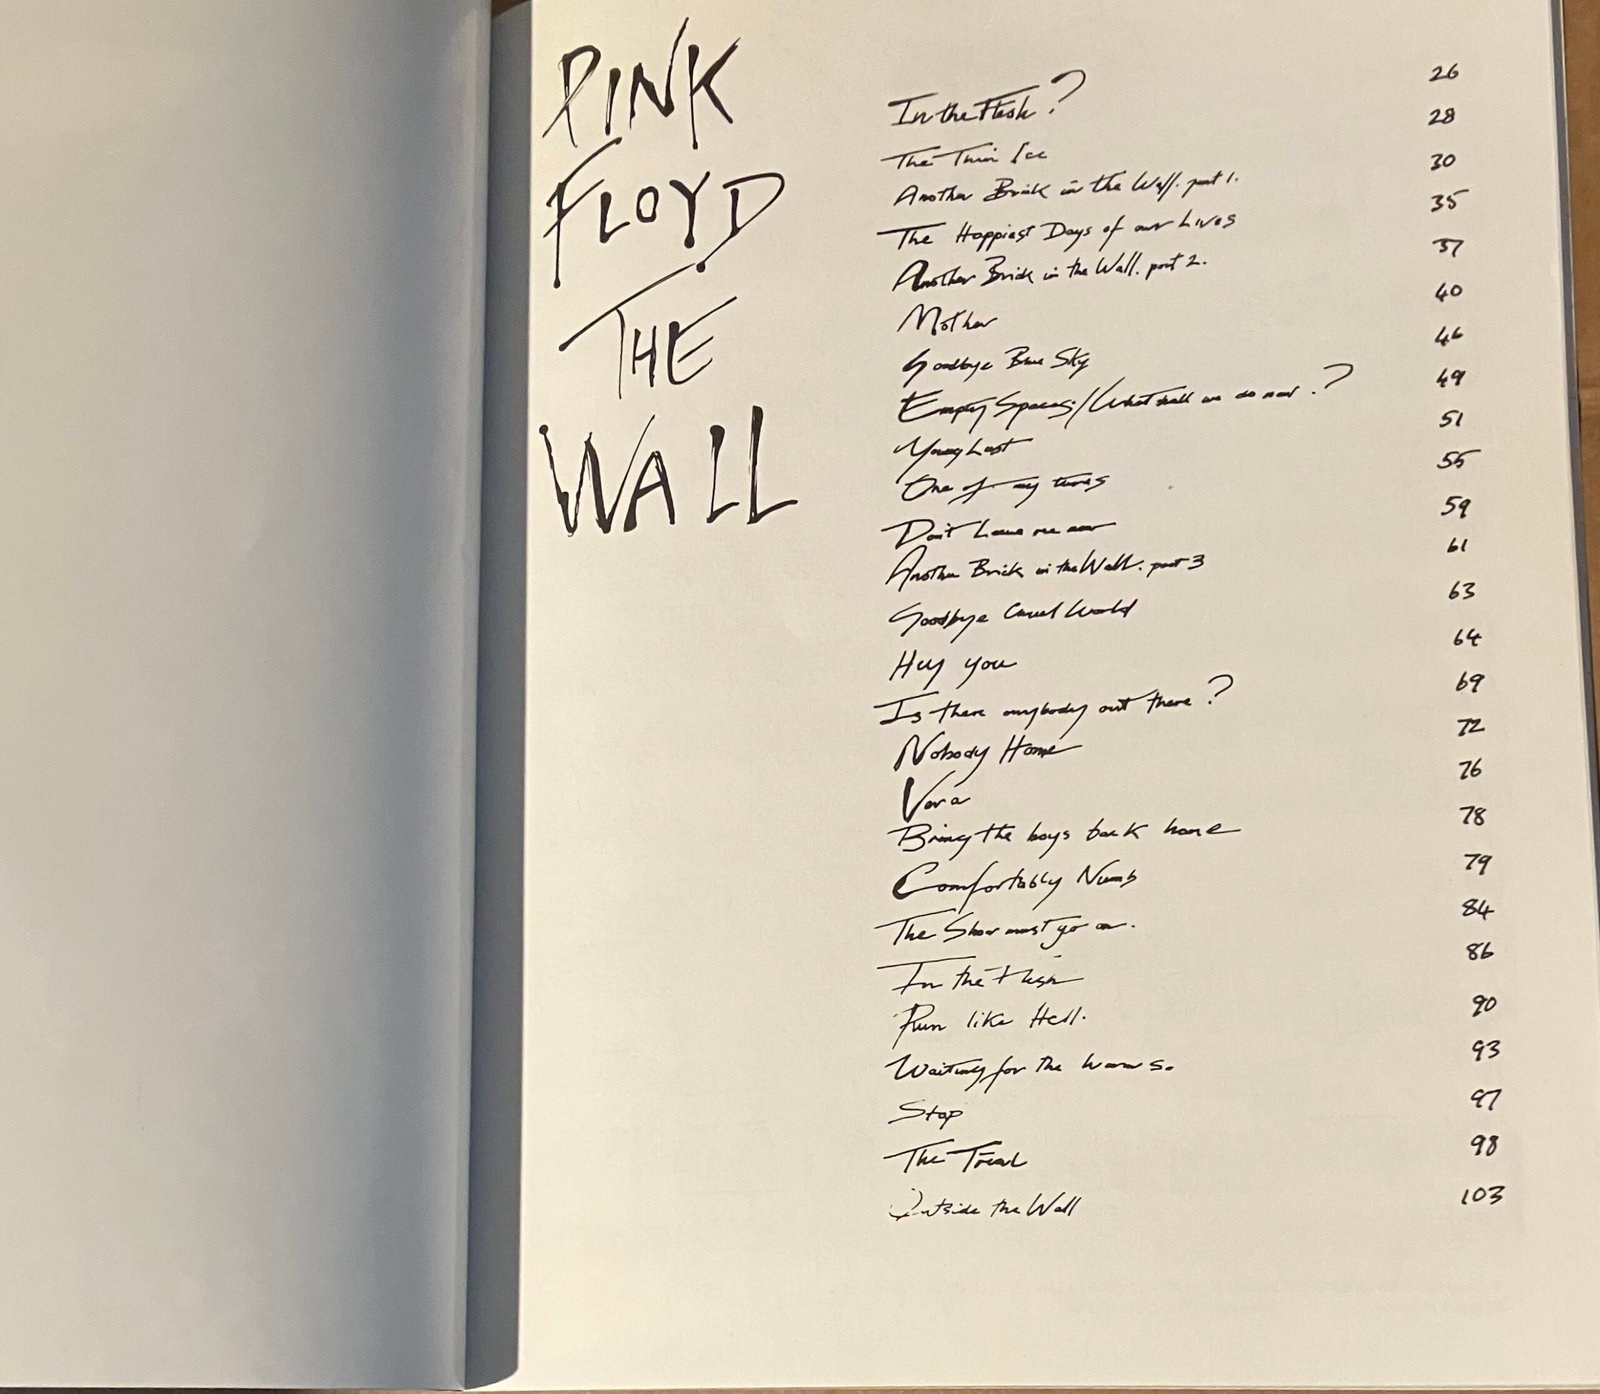 PINK
FLOYD
THE
WALL
In the Flesh? 26
The Thin Ice 28
Another Brick in the Wall. part 1. 30
The Happiest Days of our Lives 35
Another Brick in the Wall. part 2. 37
Mother 40
Goodbye Blue Sky 46
Empty Spaces/What shall we do now.? 49
Young Lust 51
One of my turns 55
Don't Leave me now 59
Another Brick in the Wall. part 3 61
Goodbye Cruel World 63
Hey you 64
Is there anybody out there? 69
Nobody Home 72
Vera 76
Bring the boys back home 78
Comfortably Numb 79
The Show must go on. 84
In the Flesh 86
Run like Hell. 90
Waiting for the worms. 93
Stop 97
The Trial 98
Outside the Wall 103